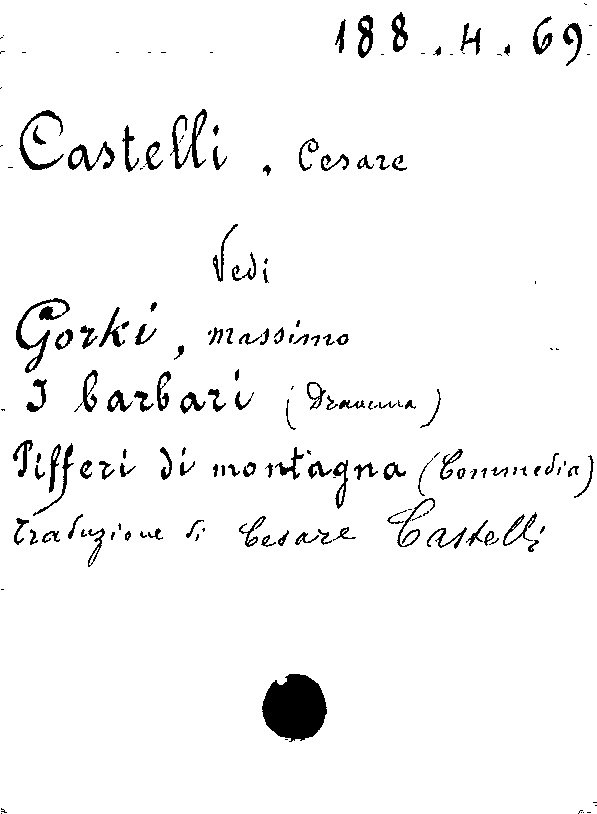 188.4.69
Castelli, Cesare
Vedi
Gorki, Massimo
I barbari (Dramma)
Pifferi di montagna (Commedia)
Traduzione di Cesare Castelli